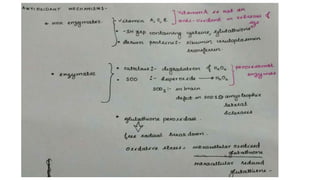 ANTIOXIDANT MECHANISMS -
* NON ENZYMATIC → Vitamin A, C, E } Vitamin K is not an anti-oxidant in absence of
* -SH gap containing cysteine, glutathione
* serum proteins - albumin ceruloplasmin
transferrin
* ENZYMATIC → * catalase :- degradation of H2O2 } peroxisomal enzymes
* SOD :- superoxide → H2O2
SOD 1 :- in brain
defect in SOD 1 → amyotrophic
lateral
sclerosis
* glutathione peroxidase.
free radical break down.
Oxidative stress : intracellular oxidised
glutathione
intracellular reduced
glutathione -